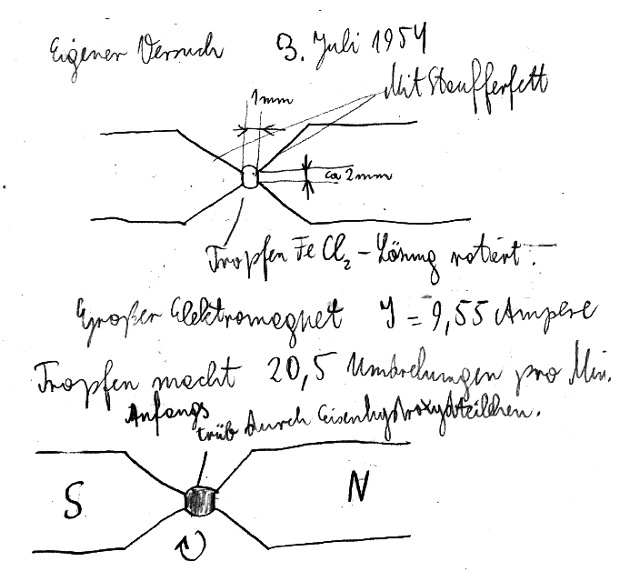 Eigener Versuch 3. Juli 1954
Mit Staufferfett
1mm
ca 2mm
Tropfen FeCl₂-Lösung rotiert.
Großer Elektromagnet J = 9,55 Ampere
Tropfen macht 20,5 Umdrehungen pro Min.
Anfangs
trüb durch Eisenhydroxydteilchen.
S
N